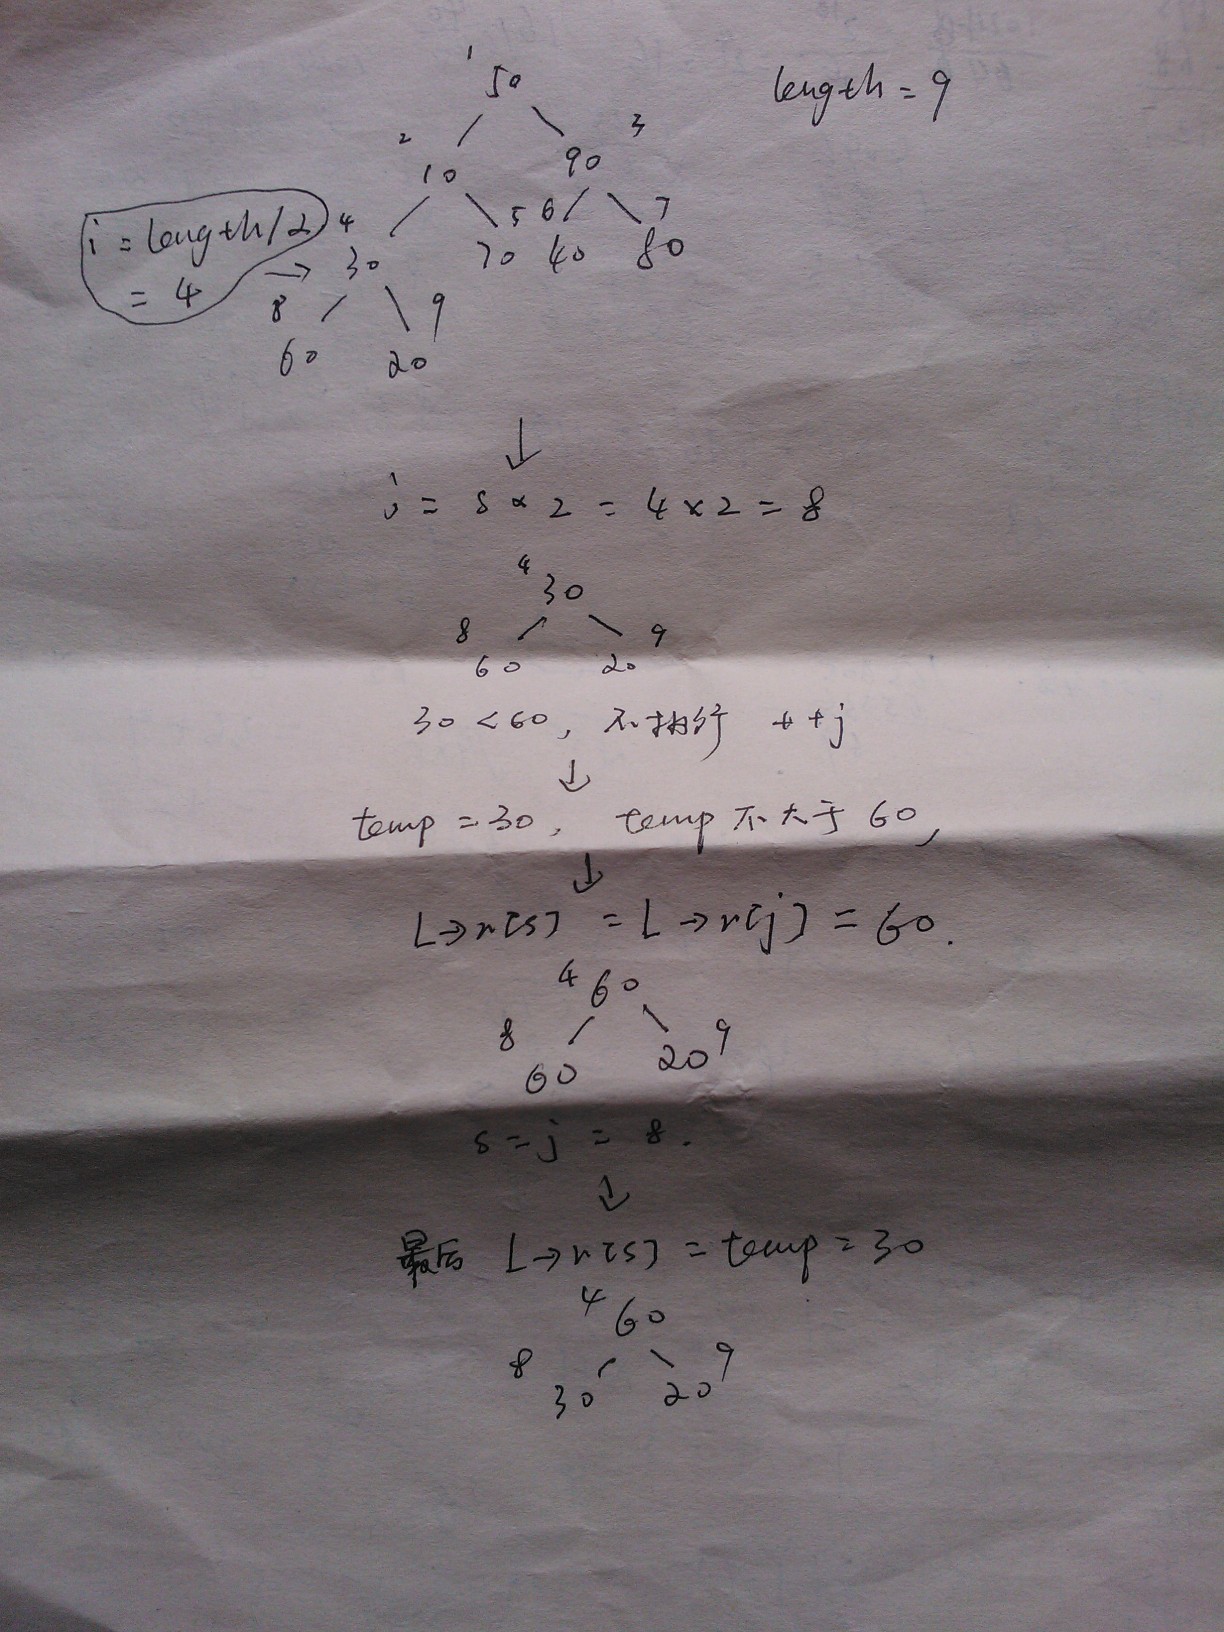 1
50
length = 9
2
3
10
90
i = length/2
4
5 6
7
= 4
→ 30
70 40 80
8
9
60
20
↓
j = s * 2 = 4 × 2 = 8
4
30
8
9
60
20
30 < 60, 不执行 ++j
↓
temp = 30, temp 不大于 60,
↓
L→r[s] = L→r[j] = 60.
4 60
8
9
60
20
s = j = 8.
↓
最后 L→r[s] = temp = 30
4 60
8
9
30
20